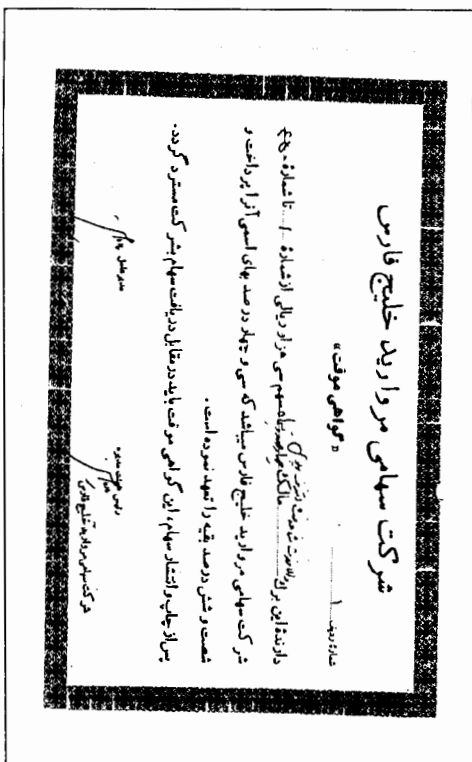 شرکت سهامی مروارید خلیج فارس
«گواهی موقت»
شماره ردیف ۱
دارنده این برگ مالک سهم سی هزار ریالی از شماره ۱ تا شماره
شرکت سهامی مروارید خلیج فارس میباشد که سی و چهار درصد بهای اسمی آنرا پرداخت و
شصت و شش درصد بقیه را تعهد نموده است.
پس از چاپ و انتشار سهام، این گواهی موقت باید در مقابل دریافت سهام بشرکت مسترد گردد.
مدیر عامل
رئیس هیئت مدیره
شرکت سهامی مروارید خلیج فارس